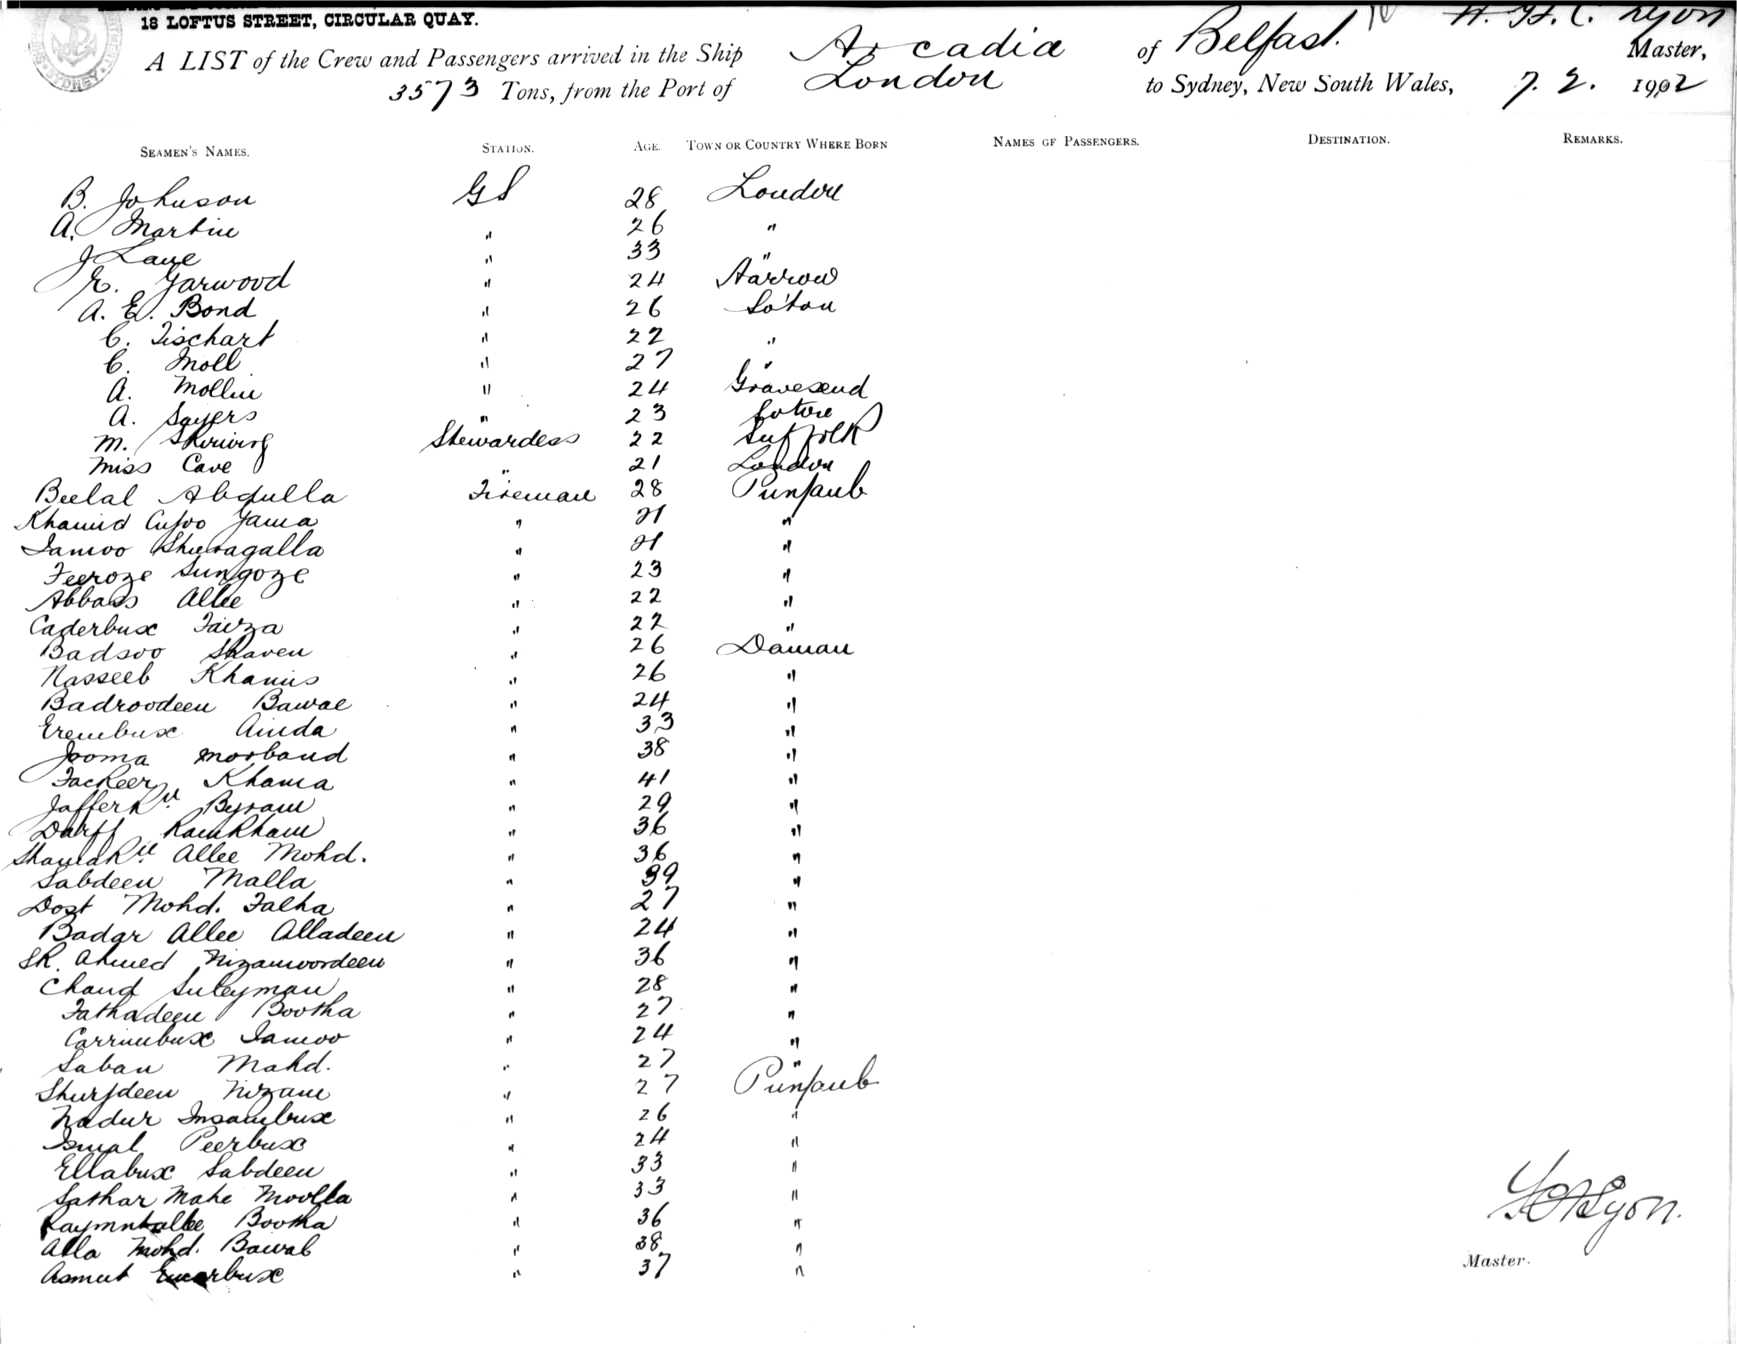 18 LOFTUS STREET, CIRCULAR QUAY.
A LIST of the Crew and Passengers arrived in the Ship Arcadia of Belfast. Lyon Master,
3573 Tons, from the Port of London to Sydney, New South Wales, 7. 2. 1902
SEAMEN'S NAMES. STATION. AGE. TOWN OR COUNTRY WHERE BORN NAMES OF PASSENGERS. DESTINATION. REMARKS.
B. Johnson GS 28 London
A. Martin " 26 "
J Lane " 33 "
E. Garwood " 24 Harrow
A. E. Bond " 26 So'ton
C. Tischart " 22 "
C. Moll " 27 "
A. Mollin " 24 Gravesend
A. Sayers " 23
M. Stewardess 22 Suffolk
Miss Cave " 21 London
Beelal Abdulla Fireman 28 Punjaub
Khamid Yama " 21 "
Jamoo " 21 "
Feeroze Sungoze " 23 "
Abbass Allee " 22 "
Caderbux Fairza " 22 "
Badsoo " 26 Daman
Nasseeb Khamis " 26 "
Badroodeen Bawae " 24 "
Erembux Ainda " 33 "
Jooma Morband " 38 "
Fackeer Khama " 41 "
Byram " 29 "
Ramkham " 36 "
Allee Mohd. " 36 "
Sabdeen Malla " 39 "
Dost Mohd. Falha " 27 "
Badar Allee Alladeen " 24 "
SK. Ahmed Nizamoordeen " 36 "
Chand Suleyman " 28 "
Fathadeen Bootha " 27 "
Carrimbux Jamoo " 24 "
Saban Mahd. " 27 "
Shurfdeen Nizam " 27 Punjaub
Nadur Imsambux " 26 "
Ismal Peerbux " 24 "
Ellabux Sabdeen " 33 "
Sathar Mahe Moolla " 33 "
Bootha " 36 "
Alla Mohd. Bawab " 38 "
Asmut " 37 "
Lyon.
Master.